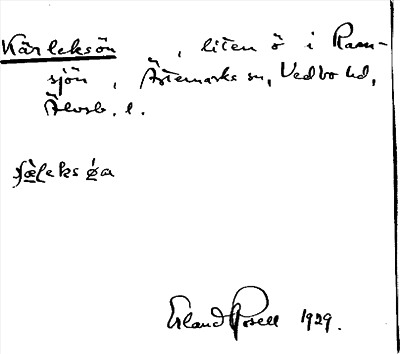 Kärleksön , liten ö i Ram-
sjön , Ärtemarks sn, Vedbo hd,
Älvsb. l.
Erland Rosell 1929.